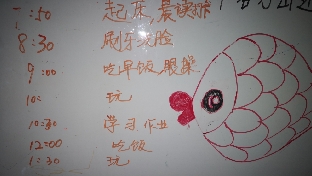 :50 起床,晨读
8:30 刷牙洗脸
9:00 吃早饭 眼操
10: 玩
10:30 学习作业
12:00 吃饭
1:30 玩